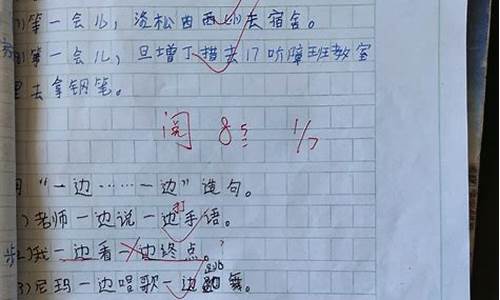 等一会儿,洛松四西去宿舍。
等一会儿,旦增丁措去17听障班教室
里去拿钢笔。
阅 85 1/7
用“一边……一边”造句。
)老师一边说一边打手语。
2)我一边看一边终点。
3)尼玛一边唱歌一边跳舞。